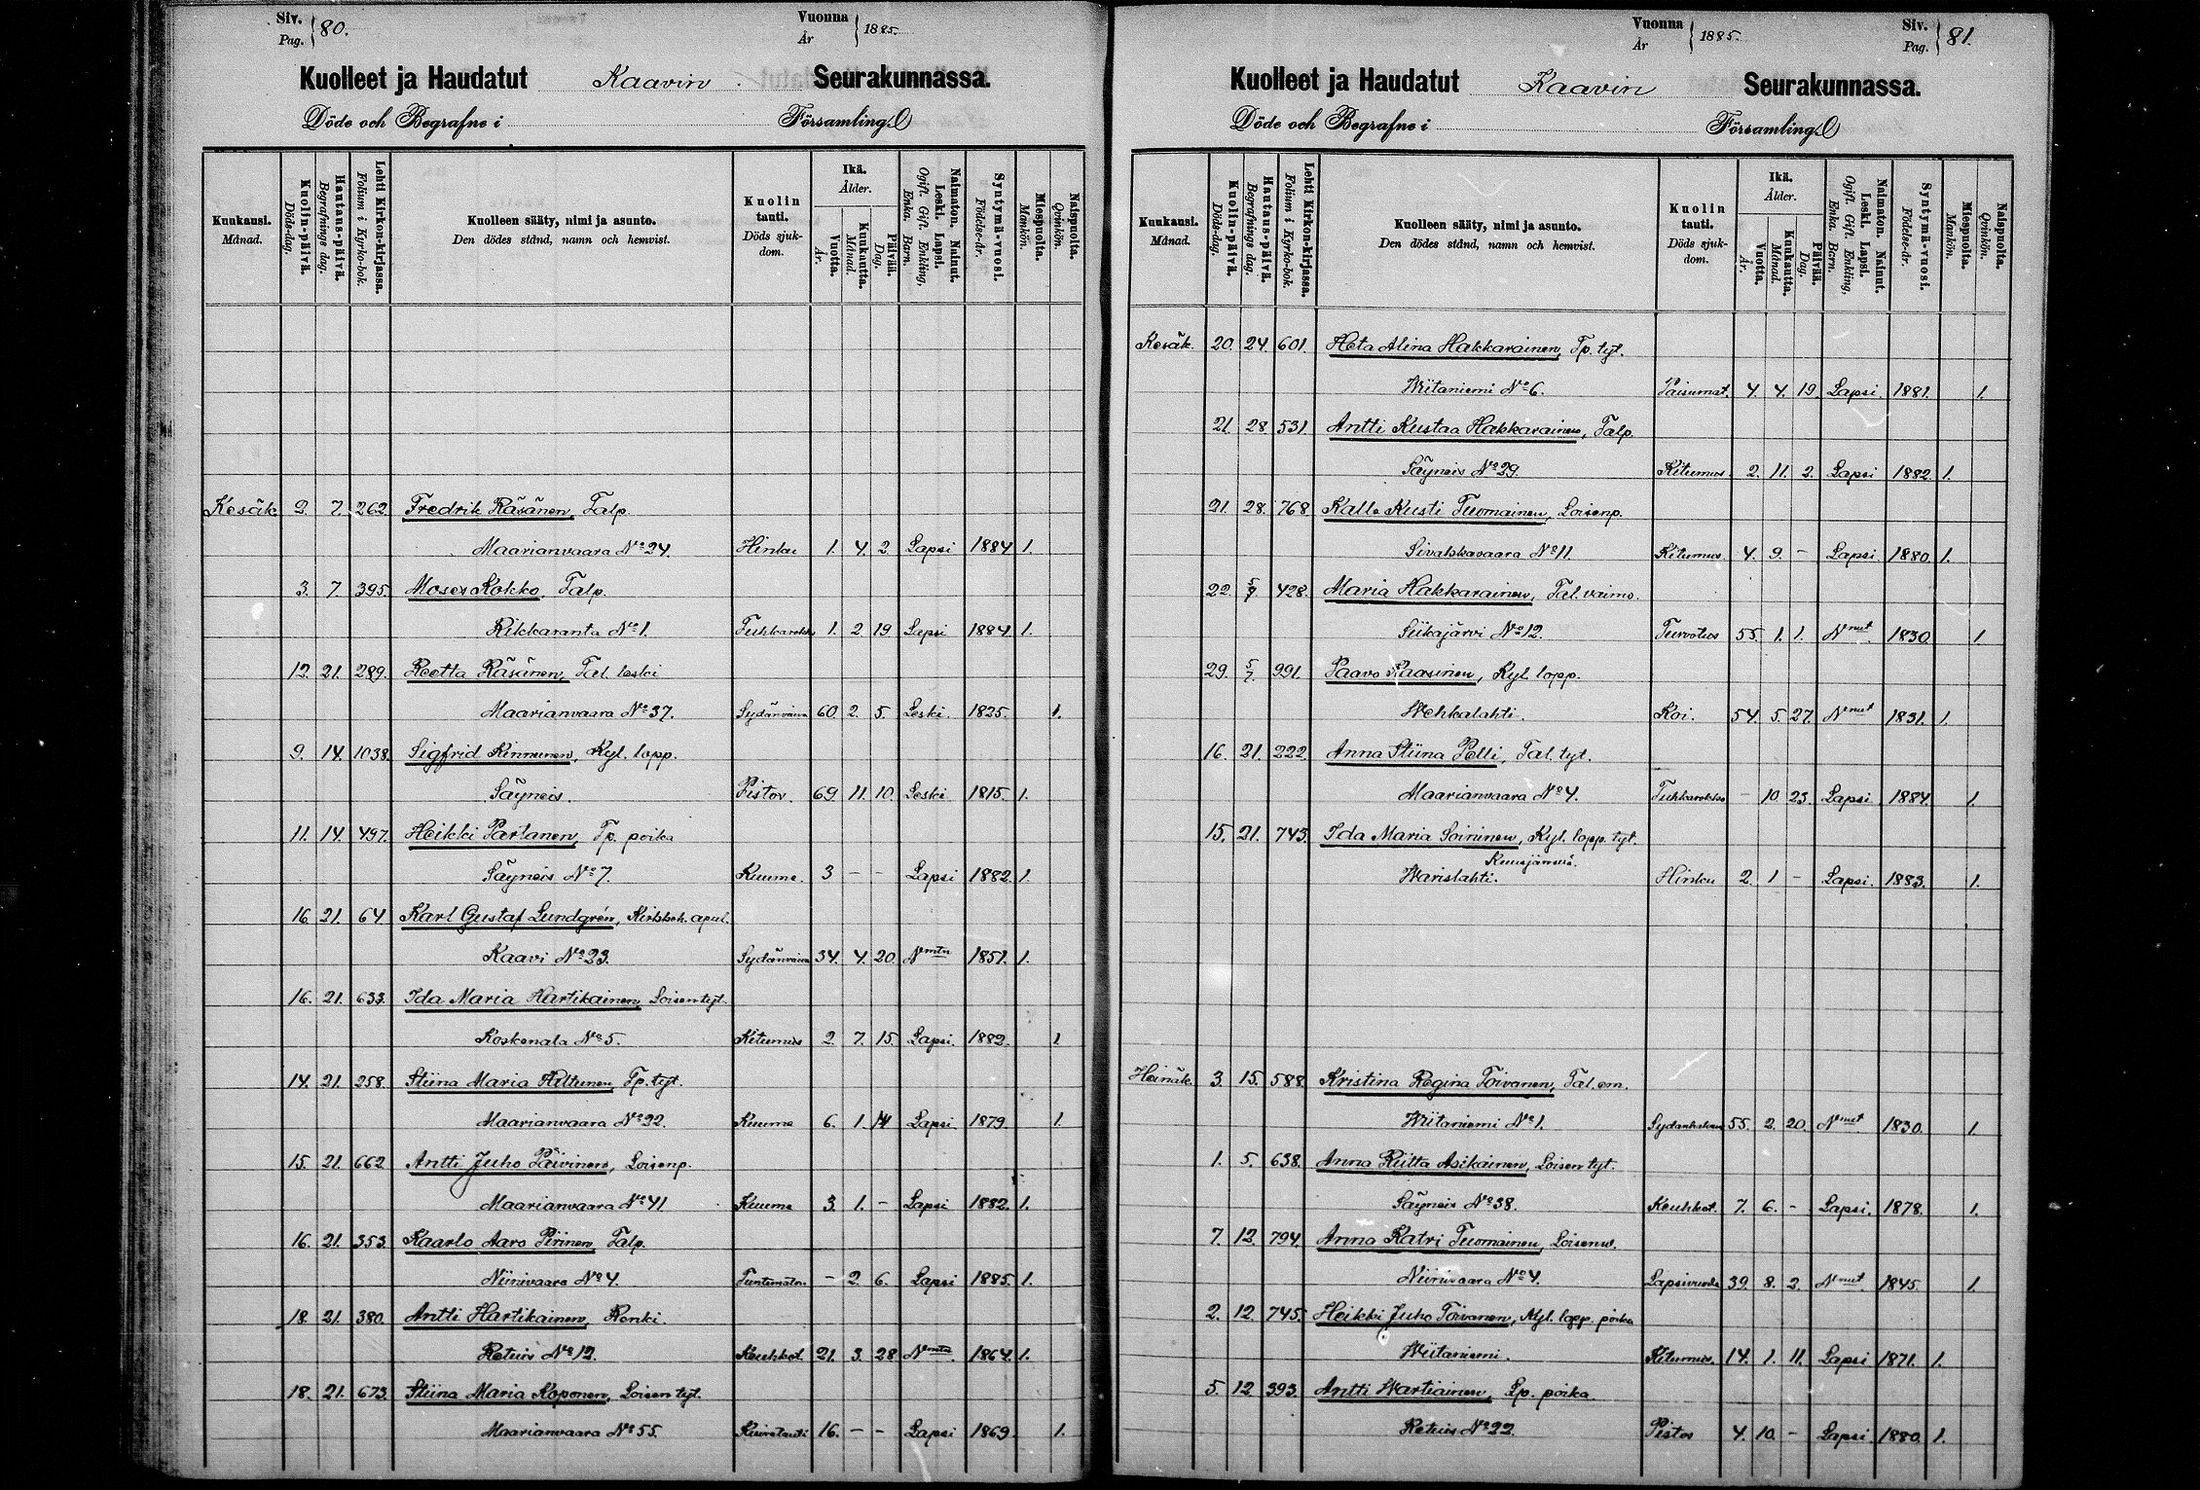 Siv. Pag. 80. Vuonna År 1885.
Kuolleet ja Haudatut Kaavin Seurakunnassa.
Döde och Begrafne i Församling
Kuukausi. Månad.
Kuolin-päivä. Döds-dag.
Hautaus-päivä. Begrafnings dag.
Lehti Kirkon-kirjassa. Folium i Kyrko-bok.
Kuolleen sääty, nimi ja asunto.
Den dödes stånd, namn och hemvist.
Kuolin tauti. Döds sjuk-dom.
Ikä. Ålder.
Vuotta. År.
Kuukautta. Månad.
Päivää. Dag.
Naimaton. Nainut. Leski. Lapsi. Ogift. Gift. Enkling, Enka. Barn.
Syntymä-vuosi. Födelse-år.
Miespuolta. Mankön.
Naispuolta. Qvinkön.
Kesäk. 2. 7. 262 Fredrik Räsänen, Talp.
Maarianvaara No 24. Hinku 1. 4. 2. Lapsi 1884 1.
3. 7. 395. Moses Kokko, Talp.
Rikkaranta No 1. Tuhkarokko 1. 2 19 Lapsi 1884. 1.
12. 21. 289. Reetta Räsänen, Tal. leski
Maarianvaara No 37. Sydänvika 60. 2. 5. Leski. 1825. 1.
9. 14. 1038. Sigfrid Kinnunen, Kyl. lopp.
Säyneis. Pistos. 69. 11. 10. Leski 1815. 1.
11. 14. 497. Heikki Partanen, Tp. poika
Säyneis No 7. Kuume. 3 - - Lapsi 1882. 1.
16 21. 64 Karl Gustaf Lundgrén, Kirkkoh. apul.
Kaavi No 23. Sydänvika 34. 4. 20. Nmtn 1851. 1.
16. 21. 633. Ida Maria Hartikainen, Loisen tyt.
Koskenala No 5. Kitumus 2. 7. 15. Lapsi. 1882. 1
14. 21. 258. Stiina Maria Hiltunen Tp. tyt.
Maarianvaara No 22. Kuume 6. 1. 14 Lapsi. 1879. 1.
15. 21. 662 Antti Juho Päivinen, Loisenp.
Maarianvaara No 41 Kuume 3. 1. - Lapsi 1882. 1.
16. 21. 353. Kaarlo Aaro Piirinen, Talp.
Niinivaara No 4. Tuntematon. - 2. 6. Lapsi 1885. 1.
18. 21. 380. Antti Hartikainen, Renki.
Retuis No 12. Keuhkot. 21. 3. 28 Nmtn 1864. 1.
18. 21. 673. Stiina Maria Koponen, Loisen tyt.
Maarianvaara No 55. 16. - - Lapsi 1869. 1.
Vuonna År 1885. Siv. Pag. 81.
Kuolleet ja Haudatut Kaavin Seurakunnassa.
Döde och Begrafne i Församling
Kuukausi. Månad.
Kuolin-päivä. Döds-dag.
Hautaus-päivä. Begrafnings dag.
Lehti Kirkon-kirjassa. Folium i Kyrko-bok.
Kuolleen sääty, nimi ja asunto.
Den dödes stånd, namn och hemvist.
Kuolin tauti. Döds sjuk-dom.
Ikä. Ålder.
Vuotta. År.
Kuukautta. Månad.
Päivää. Dag.
Naimaton. Nainut. Leski. Lapsi. Ogift. Gift. Enkling, Enka. Barn.
Syntymä-vuosi. Födelse-år.
Miespuolta. Mankön.
Naispuolta. Qvinkön.
Kesäk. 20. 24. 601. Heta Alina Hakkarainen, Tp. tyt.
Wiitaniemi No 6. Paisumat. 4. 4. 19. Lapsi. 1881. 1.
21 28 531 Antti Kustaa Hakkarainen, Talp.
Säyneis No 29. Kitumus 2. 11. 2. Lapsi 1882. 1.
21. 28. 768 Kalle Kusti Tuomainen, Loisenp.
Sivakkavaara No 11 Kitumus. 4. 9. - Lapsi. 1880. 1.
22. 5/7. 428. Maria Hakkarainen, Tal. vaimo.
Siikajärvi No 12. Turvotus 55. 1. 1. Nnut. 1830. 1.
29. 5/7. 991. Paavo Raasinen, Kyl. lopp.
Wehkalahti. Koi. 54. 5. 27. Nnut 1831. 1.
16. 21. 222. Anna Stiina Pelli, Tal. tyt.
Maarianvaara No 4. Tuhkarokko - 10. 23. Lapsi. 1884. 1.
15. 21. 743. Ida Maria Soininen, Kyl. lopp. tyt.
Kuusjärveä.
Warislahti. Hinku 2. 1 - Lapsi. 1883. 1.
Heinäk. 3. 15. 588. Kristina Regina Toivanen, Tal. em.
Wiitaniemi No 1. 55. 2. 20. Nnut. 1830. 1.
1. 5. 638. Anna Riitta Asikainen, Loisen tyt.
Säyneis No 38. Keuhkot. 7. 6. - Lapsi. 1878. 1.
7. 12. 794. Anna Katri Tuomainen, Loisenv.
Niinivaara No 4. Lapsivuode 39. 8. 2. Nnut. 1845. 1.
2. 12. 745. Heikki Juho Toivanen, Kyl. lopp. poika
Wiitaniemi. Kitumus. 14. 1. 11. Lapsi 1871. 1.
5. 12 393. Antti Wartiainen, Lp. poika.
Retuis No 22. Pistos 4. 10. - Lapsi. 1880. 1.